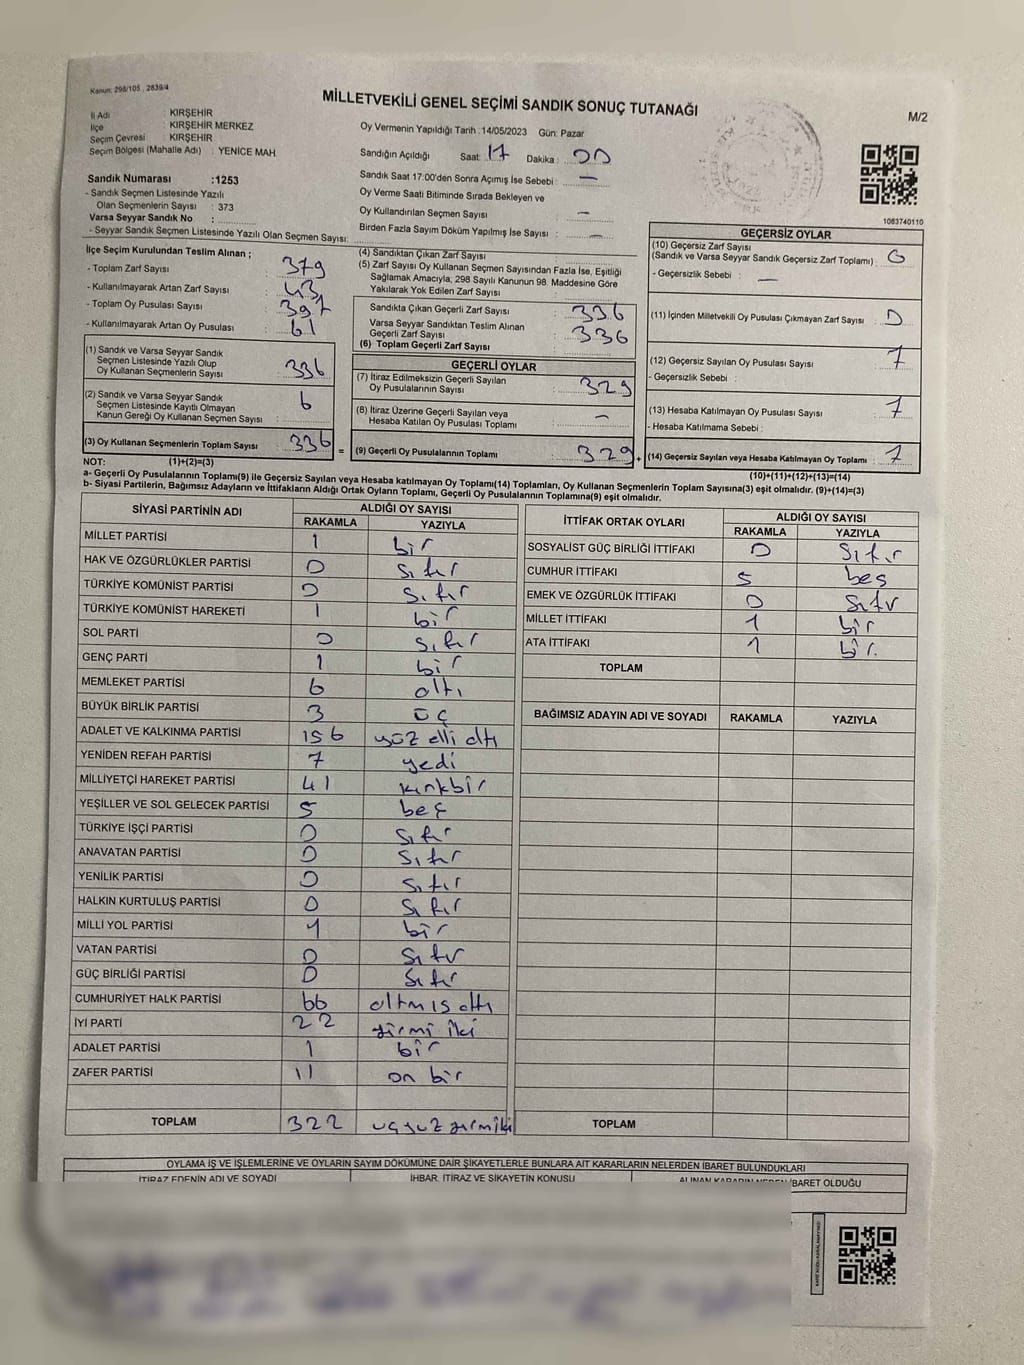 Kanun: 298/105 , 2839/4
MİLLETVEKİLİ GENEL SEÇİMİ SANDIK SONUÇ TUTANAĞI
M/2
İl Adı : KIRŞEHİR
İlçe : KIRŞEHİR MERKEZ
Seçim Çevresi : KIRŞEHİR
Seçim Bölgesi (Mahalle Adı) : YENİCE MAH.
Oy Vermenin Yapıldığı Tarih :14/05/2023 Gün: Pazar
Sandığın Açıldığı Saat: 17 Dakika : 00
Sandık Saat 17:00'den Sonra Açımış İse Sebebi : —
Oy Verme Saati Bitiminde Sırada Bekleyen ve
Oy Kullandırılan Seçmen Sayısı : —
Birden Fazla Sayım Döküm Yapılmış İse Sayısı : —
1083740110
Sandık Numarası :1253
- Sandık Seçmen Listesinde Yazılı
Olan Seçmenlerin Sayısı : 373
Varsa Seyyar Sandık No :
- Seyyar Sandık Seçmen Listesinde Yazılı Olan Seçmen Sayısı:
İlçe Seçim Kurulundan Teslim Alınan ;
- Toplam Zarf Sayısı : 379
- Kullanılmayarak Artan Zarf Sayısı : 43
- Toplam Oy Pusulası Sayısı : 397
- Kullanılmayarak Artan Oy Pusulası : 61
(1) Sandık ve Varsa Seyyar Sandık
Seçmen Listesinde Yazılı Olup
Oy Kullanan Seçmenlerin Sayısı : 336
(2) Sandık ve Varsa Seyyar Sandık
Seçmen Listesinde Kayıtlı Olmayan
Kanun Gereği Oy Kullanan Seçmen Sayısı : 6
(3) Oy Kullanan Seçmenlerin Toplam Sayısı : 336 =
(4) Sandıktan Çıkan Zarf Sayısı :
(5) Zarf Sayısı Oy Kullanan Seçmen Sayısından Fazla İse, Eşitliği
Sağlamak Amacıyla, 298 Sayılı Kanunun 98. Maddesine Göre
Yakılarak Yok Edilen Zarf Sayısı :
Sandıkta Çıkan Geçerli Zarf Sayısı : 336
Varsa Seyyar Sandıktan Teslim Alınan
Geçerli Zarf Sayısı : 336
(6) Toplam Geçerli Zarf Sayısı :
GEÇERLİ OYLAR
(7) İtiraz Edilmeksizin Geçerli Sayılan
Oy Pusulalarının Sayısı : 329
(8) İtiraz Üzerine Geçerli Sayılan veya
Hesaba Katılan Oy Pusulası Toplamı : —
(9) Geçerli Oy Pusulalarının Toplamı : 329 +
GEÇERSİZ OYLAR
(10) Geçersiz Zarf Sayısı
(Sandık ve Varsa Seyyar Sandık Geçersiz Zarf Toplamı) :
- Geçersizlik Sebebi : —
(11) İçinden Milletvekili Oy Pusulası Çıkmayan Zarf Sayısı : 0
(12) Geçersiz Sayılan Oy Pusulası Sayısı : 7
- Geçersizlik Sebebi :
(13) Hesaba Katılmayan Oy Pusulası Sayısı : 7
- Hesaba Katılmama Sebebi :
(14) Geçersiz Sayılan veya Hesaba Katılmayan Oy Toplamı : 7
NOT: (1)+(2)=(3)
(10)+(11)+(12)+(13)=(14)
a- Geçerli Oy Pusulalarının Toplamı(9) ile Geçersiz Sayılan veya Hesaba katılmayan Oy Toplamı(14) Toplamları, Oy Kullanan Seçmenlerin Toplam Sayısına(3) eşit olmalıdır. (9)+(14)=(3)
b- Siyasi Partilerin, Bağımsız Adayların ve İttifakların Aldığı Ortak Oyların Toplamı, Geçerli Oy Pusulalarının Toplamına(9) eşit olmalıdır.
SİYASİ PARTİNİN ADI ALDIĞI OY SAYISI
RAKAMLA YAZIYLA
MİLLET PARTİSİ 1 bir
HAK VE ÖZGÜRLÜKLER PARTİSİ 0 sıfır
TÜRKİYE KOMÜNİST PARTİSİ 0 sıfır
TÜRKİYE KOMÜNİST HAREKETİ 1 bir
SOL PARTİ 0 sıfır
GENÇ PARTİ 1 bir
MEMLEKET PARTİSİ 6 altı
BÜYÜK BİRLİK PARTİSİ 3 üç
ADALET VE KALKINMA PARTİSİ 156 yüz elli altı
YENİDEN REFAH PARTİSİ 7 yedi
MİLLİYETÇİ HAREKET PARTİSİ 41 kırkbir
YEŞİLLER VE SOL GELECEK PARTİSİ 5 beş
TÜRKİYE İŞÇİ PARTİSİ 0 sıfır
ANAVATAN PARTİSİ 0 sıfır
YENİLİK PARTİSİ 0 sıfır
HALKIN KURTULUŞ PARTİSİ 0 sıfır
MİLLİ YOL PARTİSİ 1 bir
VATAN PARTİSİ 0 sıfır
GÜÇ BİRLİĞİ PARTİSİ 0 sıfır
CUMHURİYET HALK PARTİSİ 66 altmış altı
İYİ PARTİ 22 yirmi iki
ADALET PARTİSİ 1 bir
ZAFER PARTİSİ 11 on bir
TOPLAM 322 üçyüz yirmiiki
İTTİFAK ORTAK OYLARI ALDIĞI OY SAYISI
RAKAMLA YAZIYLA
SOSYALİST GÜÇ BİRLİĞİ İTTİFAKI 0 sıfır
CUMHUR İTTİFAKI 5 beş
EMEK VE ÖZGÜRLÜK İTTİFAKI 0 sıfır
MİLLET İTTİFAKI 1 bir
ATA İTTİFAKI 1 bir.
TOPLAM
BAĞIMSIZ ADAYIN ADI VE SOYADI RAKAMLA YAZIYLA
TOPLAM
OYLAMA İŞ VE İŞLEMLERİNE VE OYLARIN SAYIM DÖKÜMÜNE DAİR ŞİKAYETLERLE BUNLARA AİT KARARLARIN NELERDEN İBARET BULUNDUKLARI
İTİRAZ EDENİN ADI VE SOYADI İHBAR, İTİRAZ VE ŞİKAYETİN KONUSU ALINAN KARARIN NEDEN İBARET OLDUĞU